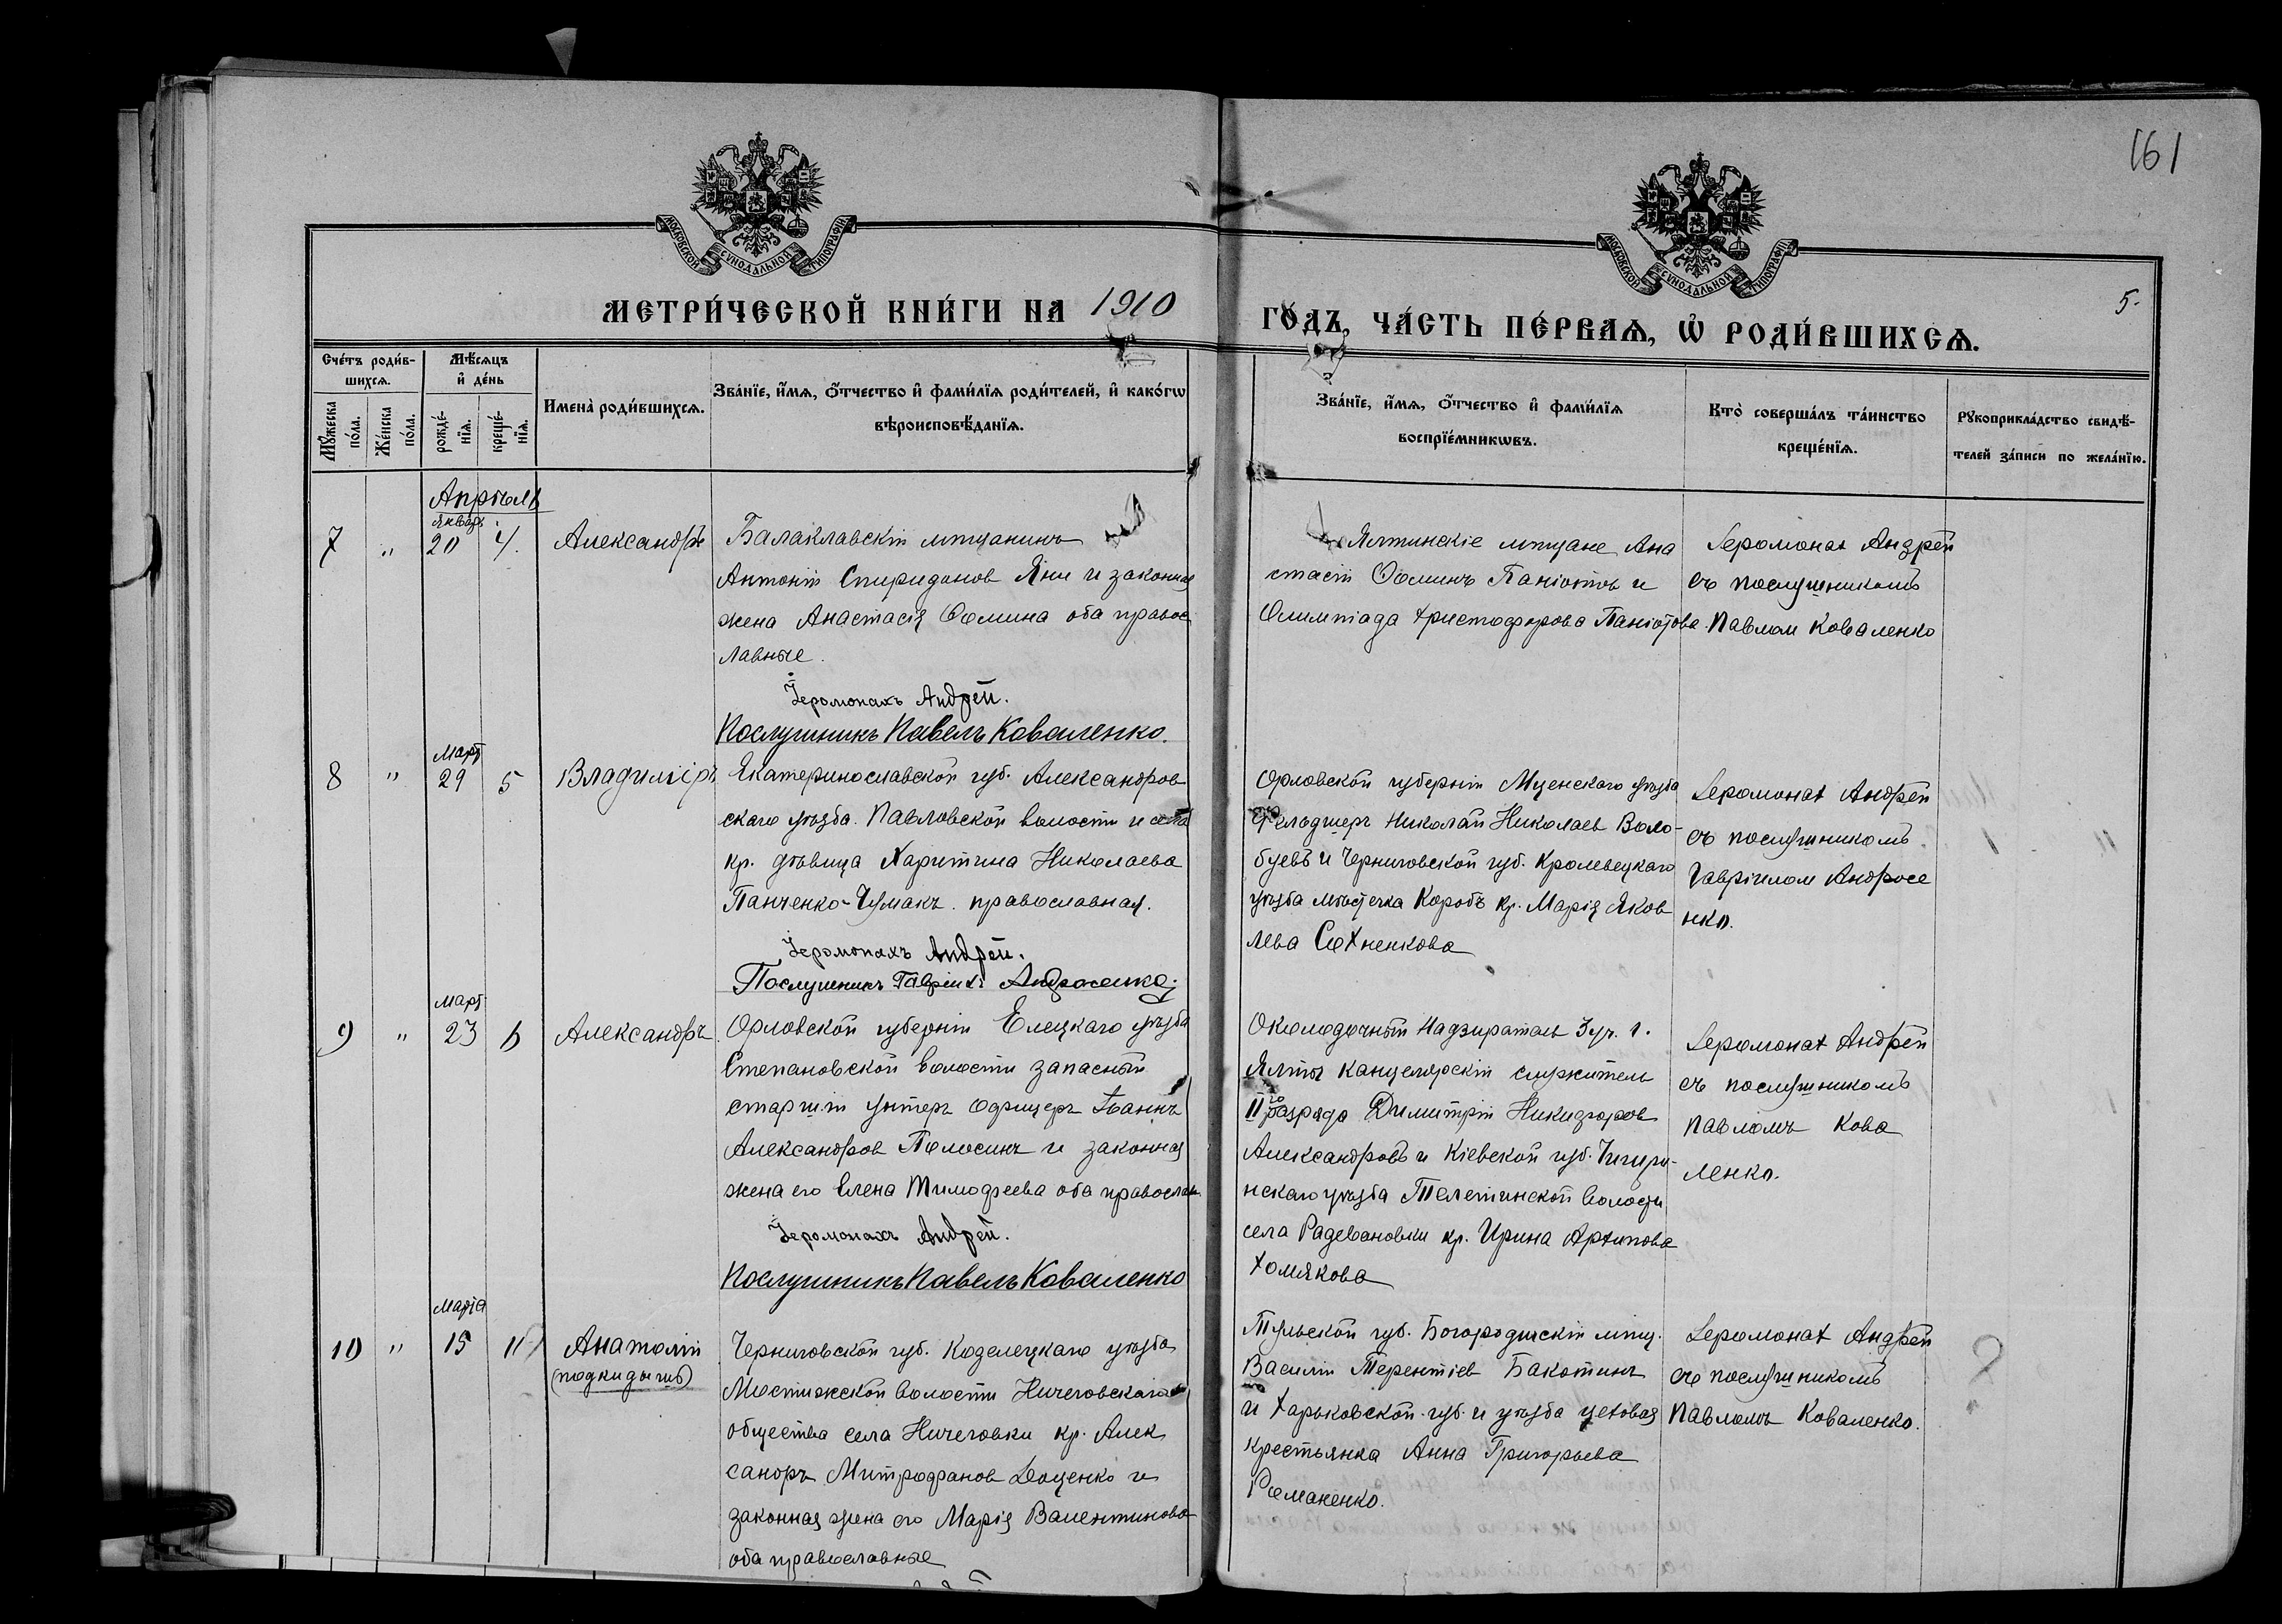 161
МОСКОВСКОЙ СѴНОДАЛЬНОЙ ТИПОГРАФІИ
МОСКОВСКОЙ СѴНОДАЛЬНОЙ ТИПОГРАФІИ
МЕТРИ́ЧЕСКОЙ КНИ́ГИ НА 1910
ГО́ДЪ, ЧА́СТЬ ПЕ́РВАѦ, Ѡ҆ РОДИ́ВШИХСѦ.
5.
Сче́тъ роди́в-
шихсѧ.
Мѣ́сѧцъ
и҆ де́нь
Мꙋ́жеска
по́ла.
Же́нска
по́ла.
рожде́-
нїѧ.
креще́-
нїѧ.
Имена̀ роди́вшихсѧ.
Зва́нїе, и҆́мѧ, ѻ҆́тчество и҆ фами́лїѧ роди́телей, и҆ како́гѡ
вѣроисповѣ́данїѧ.
Зва́нїе, и҆́мѧ, ѻ҆́тчество и҆ фами́лїѧ
воспрїе́мникѡвъ.
Кто̀ соверша́лъ та́инство
креще́нїѧ.
Рꙋкоприкла́дство свидѣ́-
телей за́писи по жела́нїю.
Апрѣль
Январь
7 " 20 4.
Александръ
Балаклавскій мѣщанинъ
Антоній Спиридонов Яни и законная
жена Анастасія Ѳомина оба правос
лавные.
Іеромонахъ Андрей.
Послушникъ Павелъ Коваленко.
Ялтинскіе мѣщане Ана
стасій Ѳоминъ Паніотовъ и
Олимпіада Христофорова Паніотова.
Іеромонах Андрей
съ послушникомъ
Павлом Коваленко
Март
8 " 29 5
Владиміръ
Екатеринославской губ. Александров
скаго уѣзда. Павловской волости и села
кр. дѣвица Харитина Николаева
Панченко-Чумакъ. православная.
Іеромонахъ Андрей.
Послушникъ Гавріилъ Андросенко;
Орловской губерніи Мценскаго уѣзда
Фельдшеръ Николай Николаев Воло-
буевъ и Черниговской губ. Кролевецкаго
уѣзда мѣстечка Коробъ кр. Марія Яков
лева Сохненкова
Іеромонах Андрей
съ послушникомъ
Гавріилом Андросе
нко.
Март
9 " 23 6
Александръ
Орловской губерніи Елецкаго уѣзда
Степановской волости запасный
старшій унтеръ офицеръ Іоаннъ
Александров Полосинъ и законная
жена его Елена Тимофеева оба православн.
Іеромонахъ Андрей.
Послушникъ Павелъ Коваленко
Околодочный Надзиратель 3 уч. г.
Ялты канцелярскій служитель
II го разряда Димитрій Никифоров
Александровъ и Кіевской губ. Чигири-
нскаго уѣзда Телепинской волости
села Радевановки кр. Ирина Архипова
Хомякова
Іеромонах Андрей
съ послушникомъ
Павломъ Кова
ленко.
Марта
10 " 15 11
Анатолій
(подкидышъ)
Черниговской губ. Козелецкаго уѣзда
Мостижской волости Ничеговскаго
общества села Ничеговки кр. Алек
сандръ Митрофанов Доценко и
законная жена его Марія Валентинова
оба православные
Тульской губ. Богородицкій мѣщ.
Василій Терентіев Бакотинъ
и Харьковской губ. и уѣзда цеховая
крестьянка Анна Григорьева
Романенко.
Іеромонах Андрей
съ послушникомъ
Павломъ Коваленко.
?